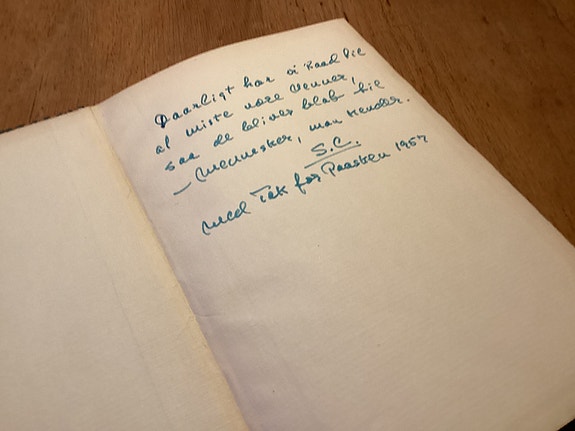 Daarligt har vi Raad til
at miste vore Venner,
saa de bliver blot til
– Mennesker, man kender.
S.C.
Med Tak for Paasken 1957